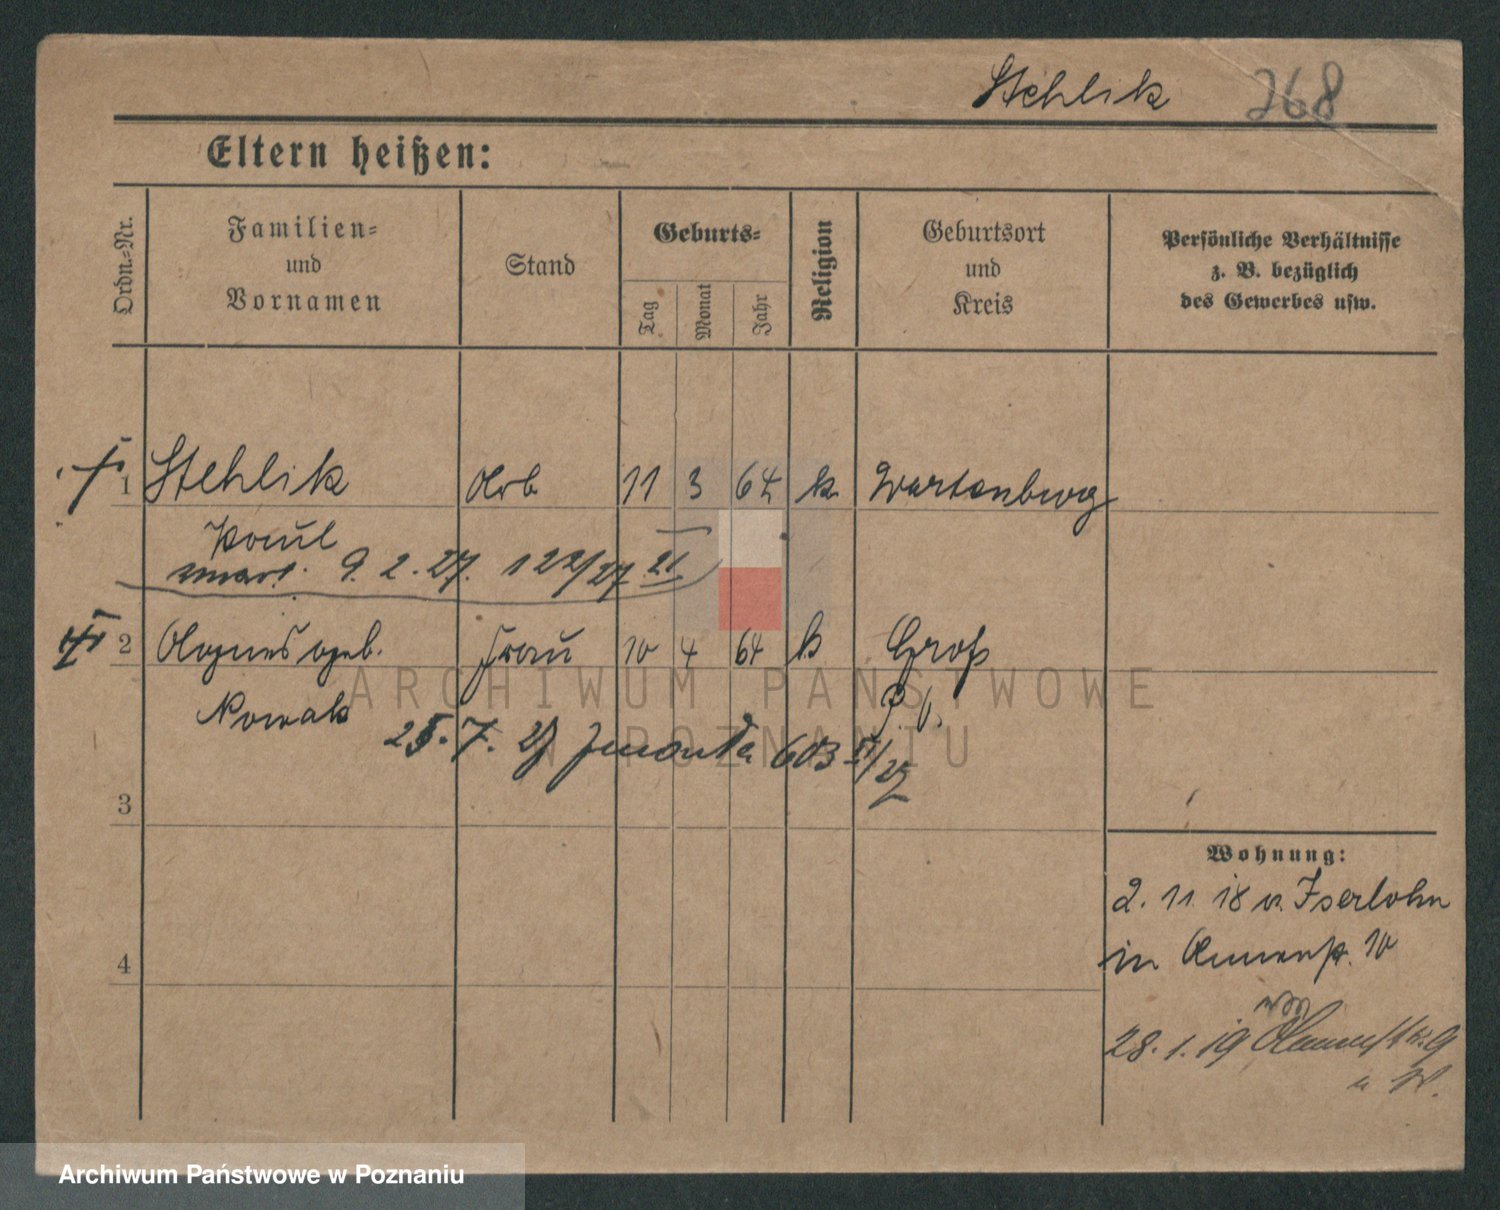 Stehlik 268
Eltern heißen:
Ordn.=Nr.
Familien=
und
Vornamen
Stand
Geburts=
Tag
Monat
Jahr
Religion
Geburtsort
und
Kreis
Persönliche Verhältnisse
z. B. bezüglich
des Gewerbes usw.
1 Stehlik Arb 11 3 64 k Wartenberg
Paul
zmarł 9. 2. 27. 122/27
2 Agnes geb. Frau 10 4 64 k Groß
Nowak
7. 27 zmarła 603
3
4
Wohnung:
2. 11. 18 v. Iserlohn
in 10
28. 1. 19
ARCHIWUM PAŃSTWOWE
W POZNANIU
Archiwum Państwowe w Poznaniu